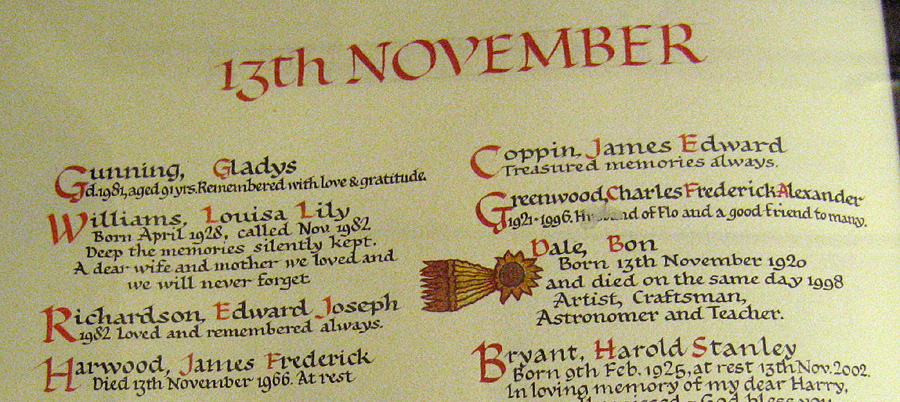 13th NOVEMBER
Gunning, Gladys
d.1981, aged 91 yrs. Remembered with love & gratitude.
Williams, Louisa Lily
Born April 1928, called Nov. 1982
Deep the memories silently kept.
A dear wife and mother we loved and
we will never forget
Richardson, Edward Joseph
1982 Loved and remembered always.
Harwood, James Frederick
Died 13th November 1966. At rest
Coppin, James Edward
Treasured memories always.
Greenwood, Charles Frederick Alexander
1921-1996. of Flo and a good friend to many.
Dale, Bon
Born 13th November 1920
and died on the same day 1998
Artist, Craftsman,
Astronomer and Teacher.
Bryant, Harold Stanley
Born 9th Feb. 1925, at rest 13th Nov. 2002.
In loving memory of my dear Harry,
God bless you